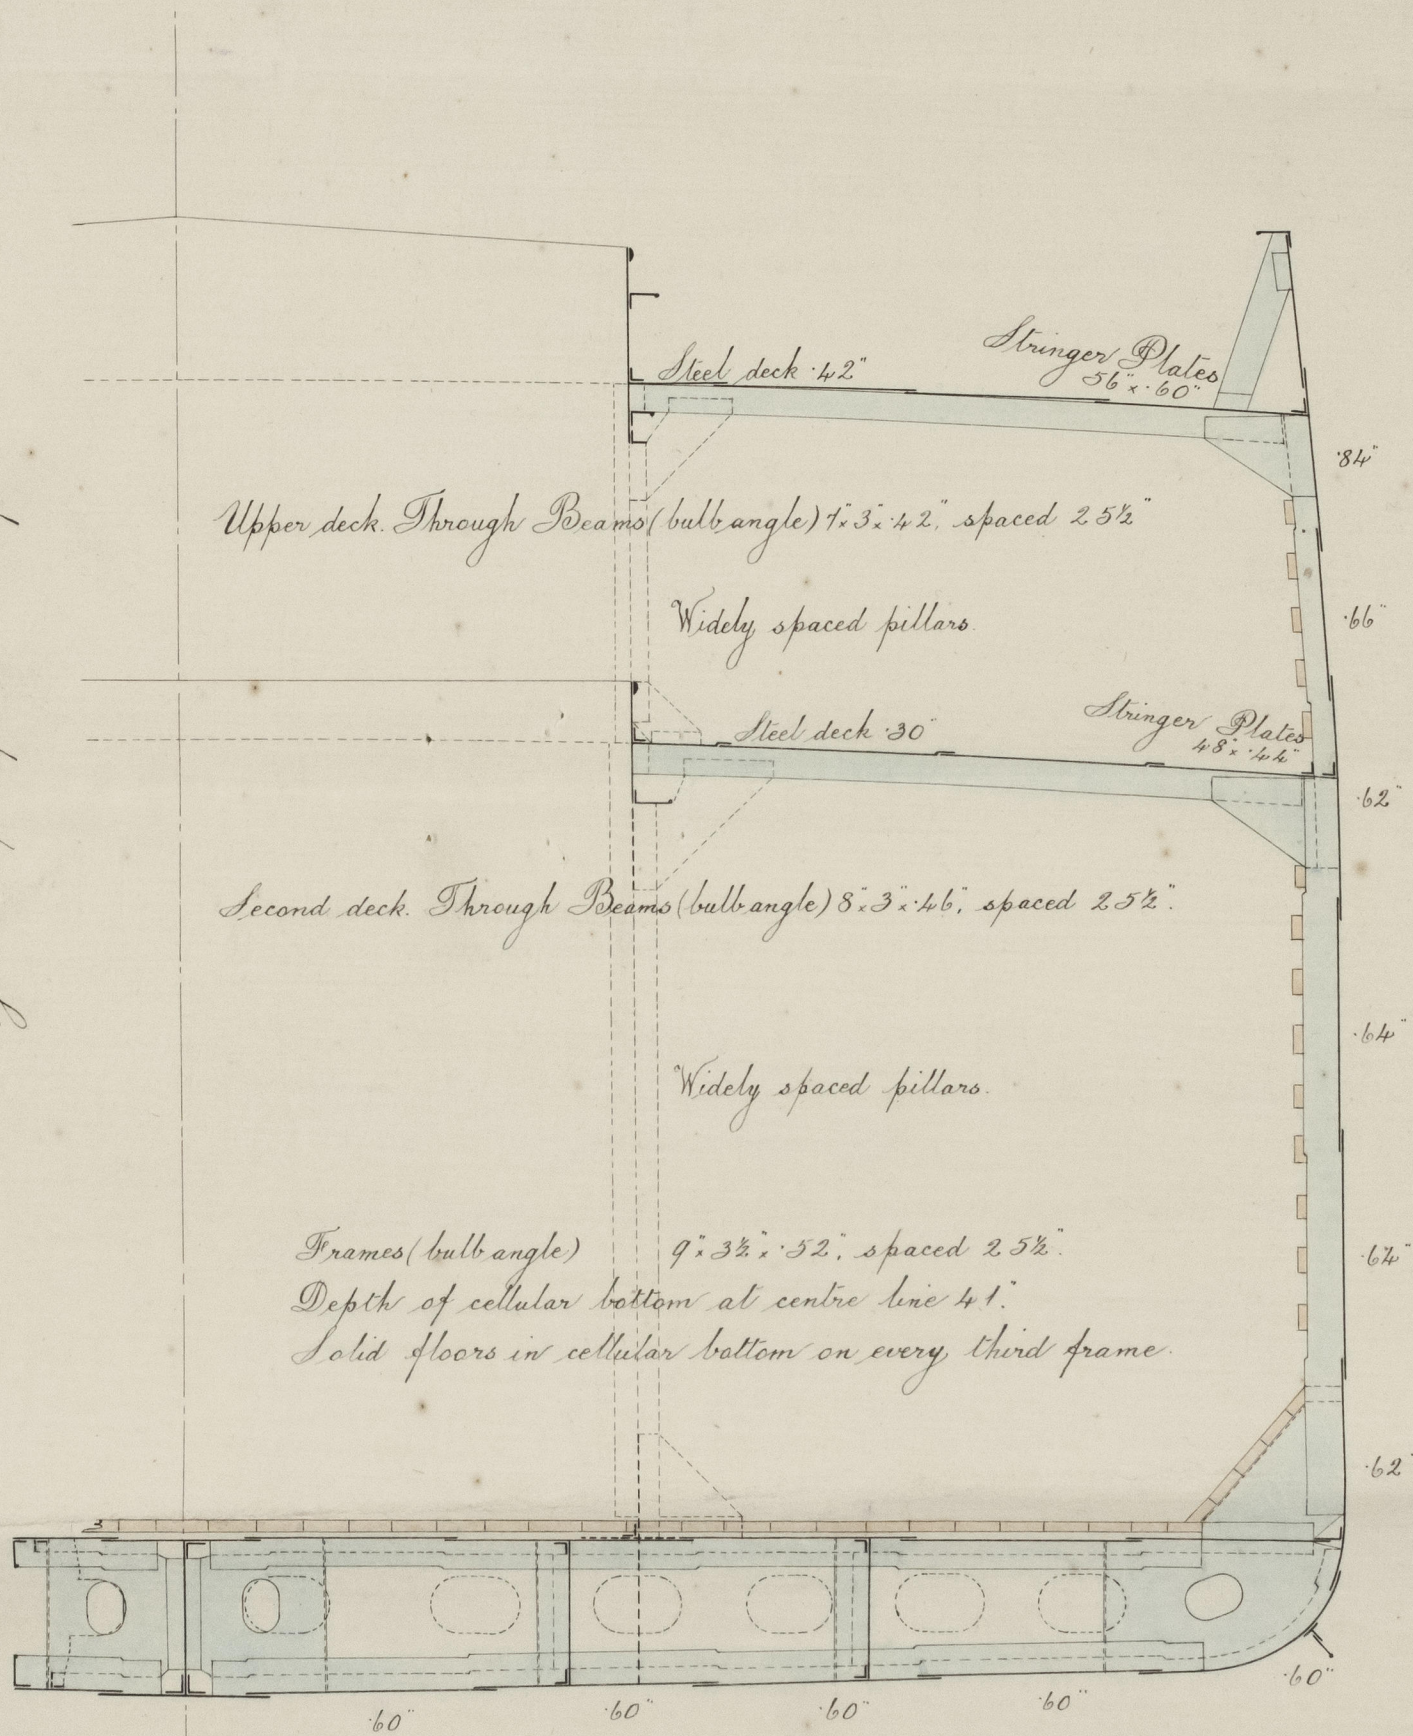 Steel deck ·42"
Stringer Plates
56" × ·60"
·84"
Upper deck. Through Beams (bulb angle) 7" × 3" × ·42", spaced 25½"
Widely spaced pillars.
·66"
Steel deck ·30"
Stringer Plates
48" × ·44"
·62"
Second deck. Through Beams (bulb angle) 8" × 3" × ·46", spaced 25½".
·64"
Widely spaced pillars.
Frames (bulb angle) 9" × 3½" × ·52", spaced 25½".
·64"
Depth of cellular bottom at centre line 41".
Solid floors in cellular bottom on every third frame.
·62"
·60"
·60"
·60"
·60"
·60"